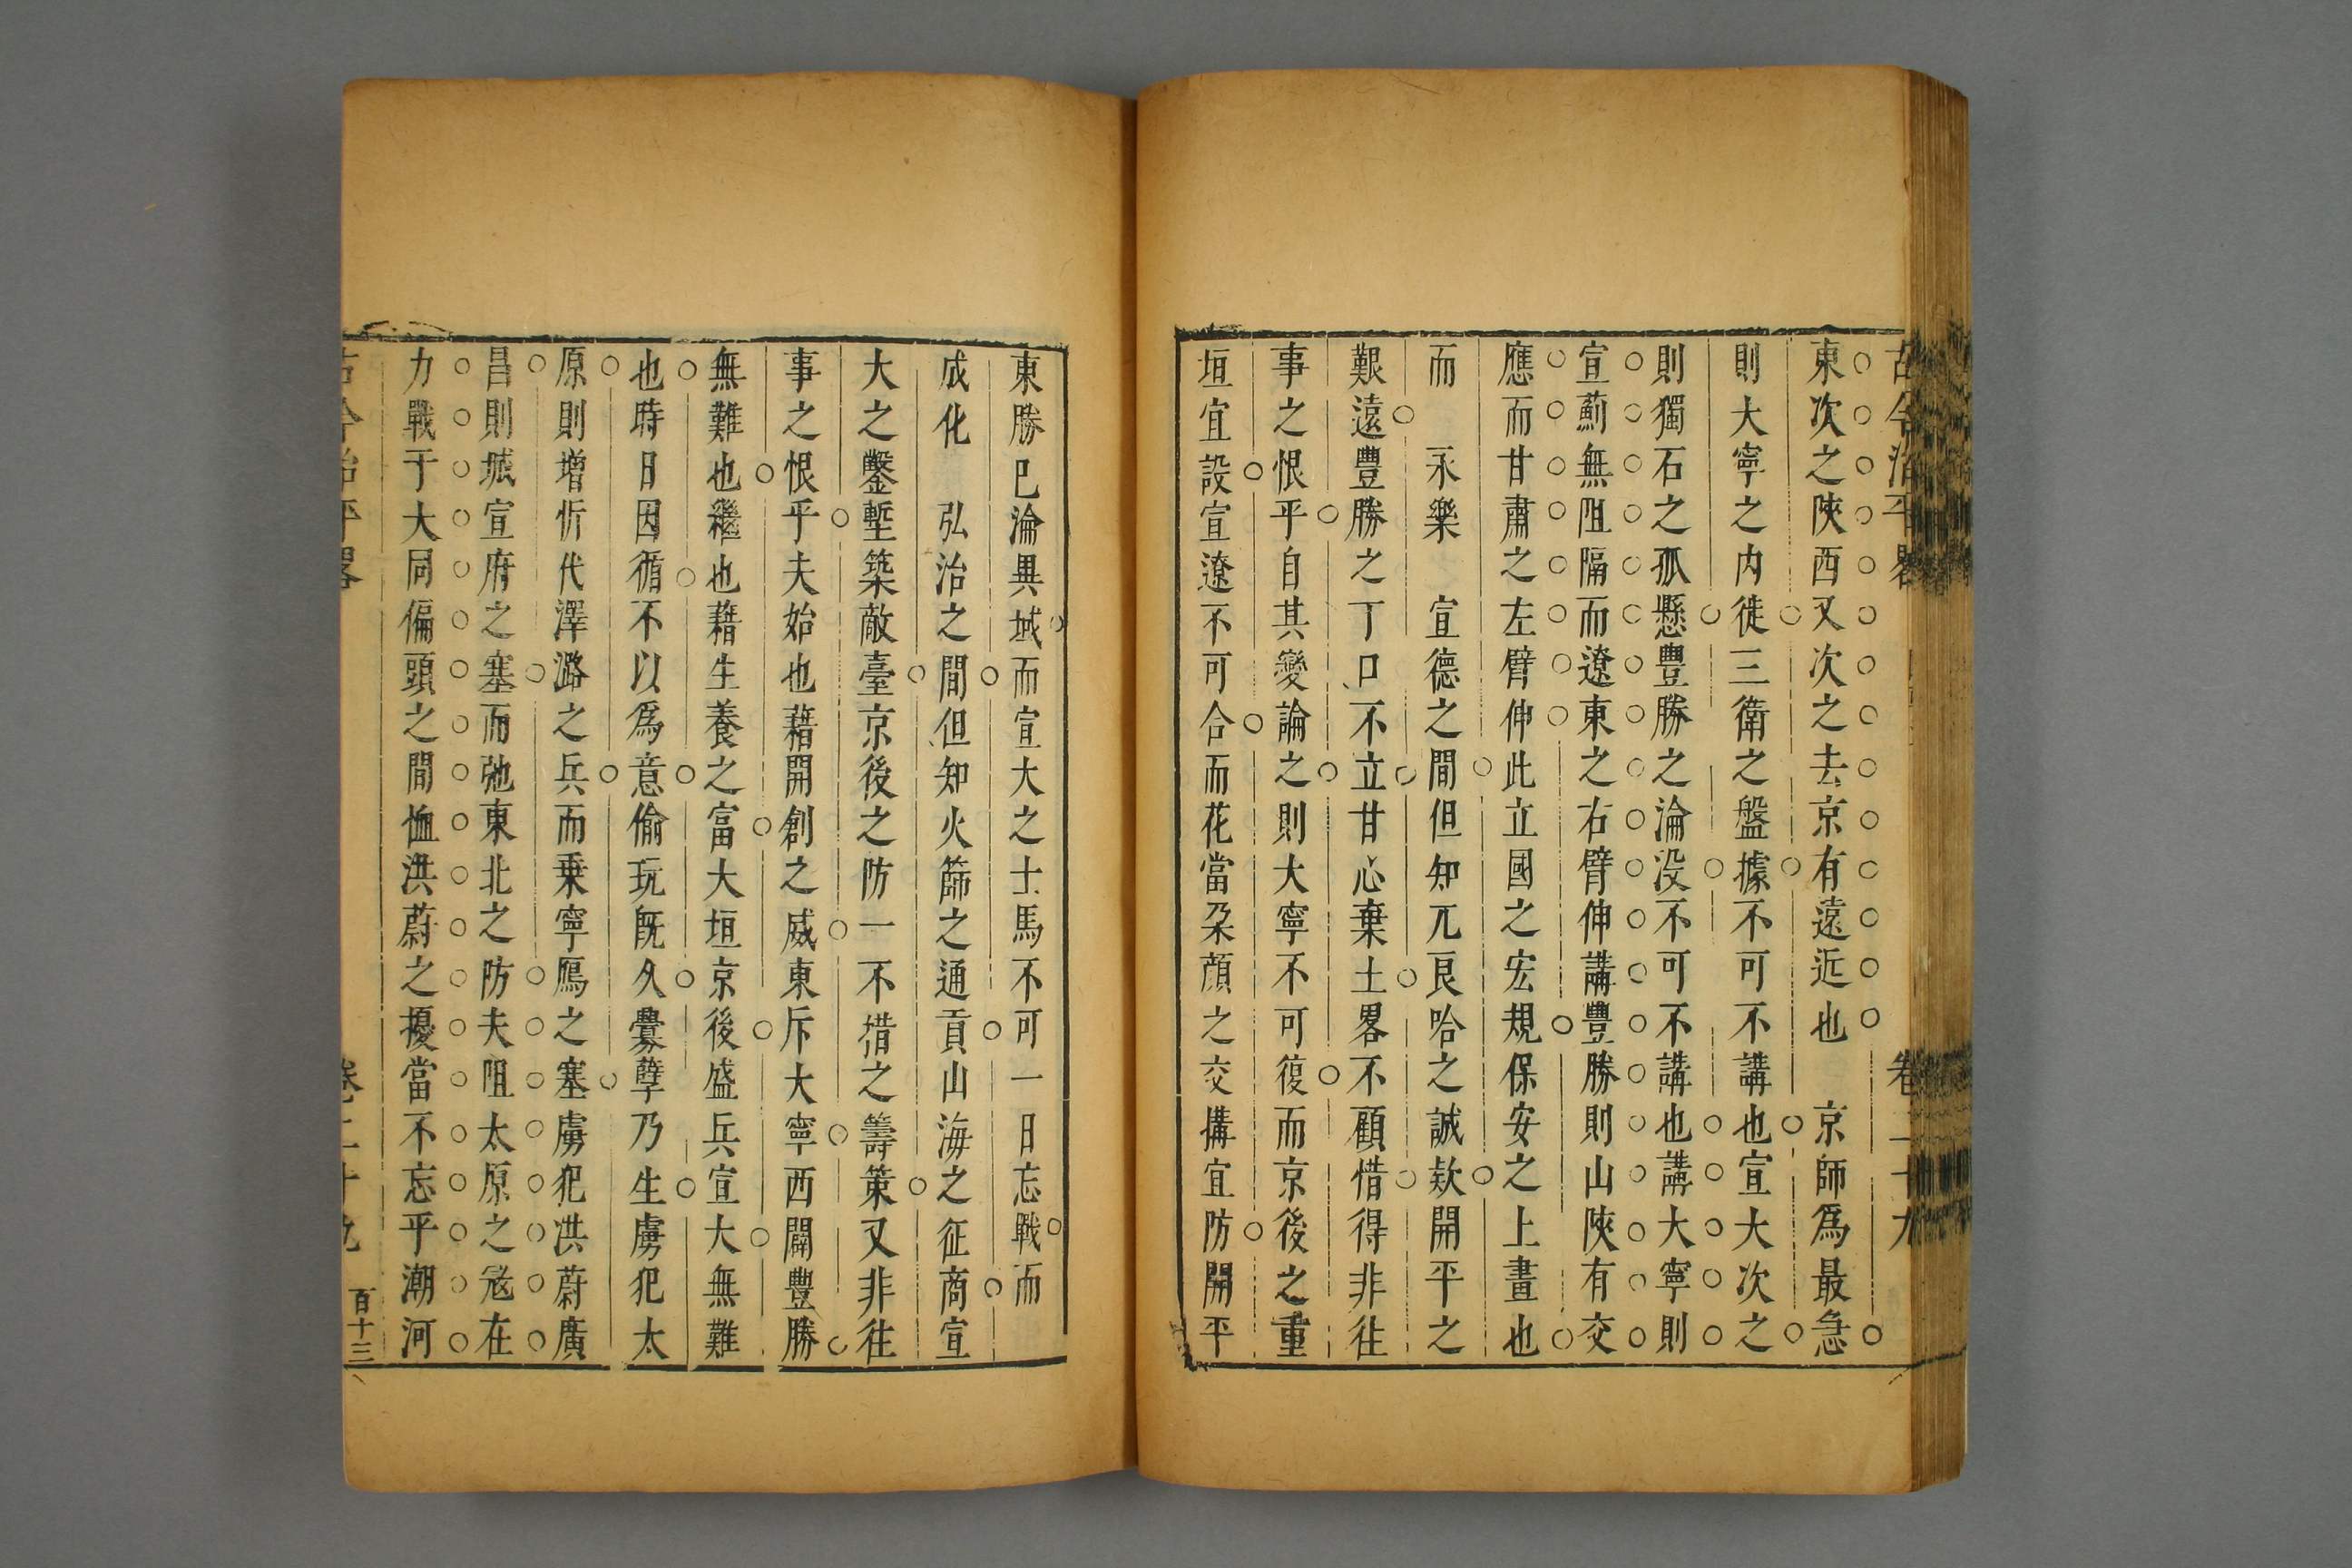 古今治平畧 卷二十九
東次之陝西又次之去京有遠近也 京師爲最急
則大寧之内徙三衛之盤據不可不講也宣大次之
則獨石之孤懸豐勝之淪没不可不講也講大寧則
宣薊無阻隔而遼東之右臂伸講豐勝則山陝有交
應而甘肅之左臂伸此立國之宏規保安之上畫也
而 永樂 宣德之間但知兀良哈之誠欵開平之
艱遠豐勝之丁口不立甘心棄土畧不顧惜得非徃
事之恨乎自其變論之則大寧不可復而京後之重
垣宜設宣遼不可合而花當朶顔之交搆宜防開平
東勝巳淪異域而宣大之士馬不可一日忘戰而
成化 弘治之間但知火篩之通貢山海之征商宣
大之鑿塹築敵臺京後之防一不措之籌策又非徃
事之恨乎夫始也藉開創之威東斥大寧西闢豐勝
無難也繼也藉生養之富大垣京後盛兵宣大無難
也時日因循不以爲意偷玩旣久釁孽乃生虜犯太
原則增忻代澤潞之兵而乗寧鴈之塞虜犯洪蔚廣
昌則城宣府之塞而弛東北之防夫阻太原之冦在
力戰于大同偏頭之間恤洪蔚之擾當不忘乎潮河
古今治平畧 卷二十九 百十三